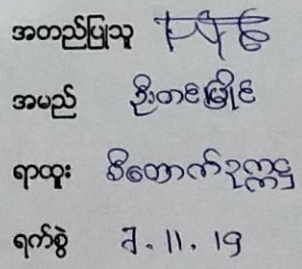 အတည်ပြုသူ
အမည် ဦးတင်မြိုင်
ရာထူး ဒီတောက်ဥက္ကဋ္ဌ
ရက်စွဲ 7.11.19